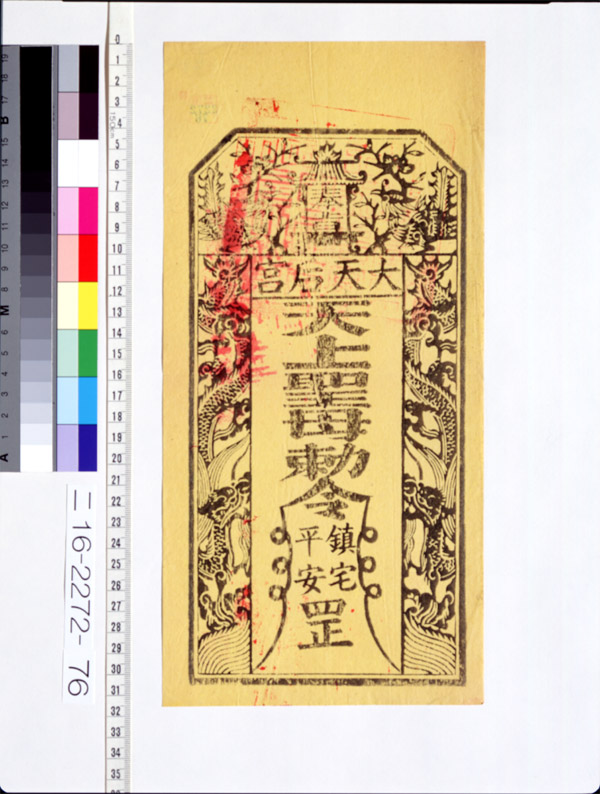 大天后宮
天上聖母勅令
鎮宅
平安
罡
二16-2272-76
0
1
2
3
4
5
6
7
8
9
10
11
12
13
14
15
16
17
18
19
20
21
22
23
24
25
26
27
28
29
30
31
32
33
34
35
A 1 2 3 4 5 6 M 8 9 10 11 12 13 14 15 B 17 18 19